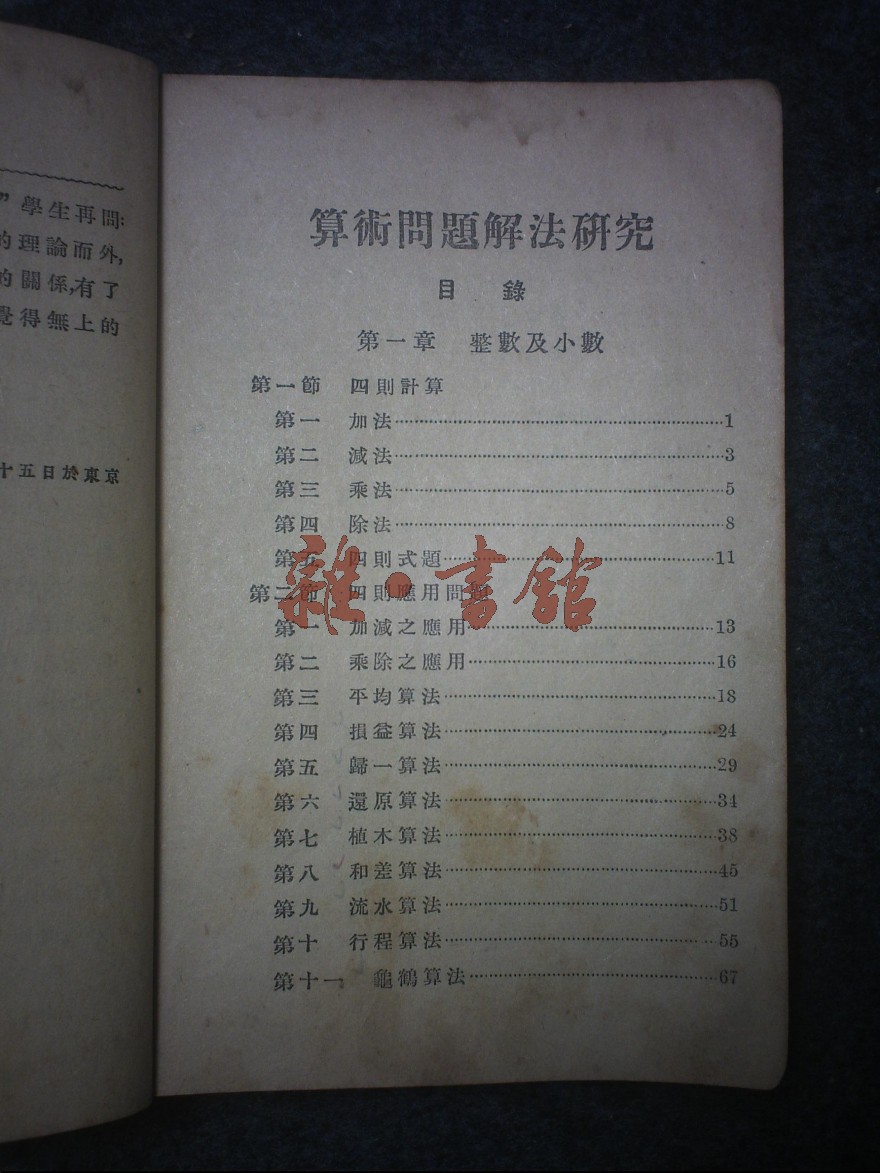 ”學生再問：
的理論而外，
的關係，有了
覺得無上的
十五日於東京
算術問題解法研究
目 錄
第一章 整數及小數
第一節 四則計算
第一 加法 1
第二 減法 3
第三 乘法 5
第四 除法 8
第五 四則式題 11
第二節 四則應用問題
第一 加減之應用 13
第二 乘除之應用 16
第三 平均算法 18
第四 損益算法 24
第五 歸一算法 29
第六 還原算法 34
第七 植木算法 38
第八 和差算法 45
第九 流水算法 51
第十 行程算法 55
第十一 龜鶴算法 67
雜·書館